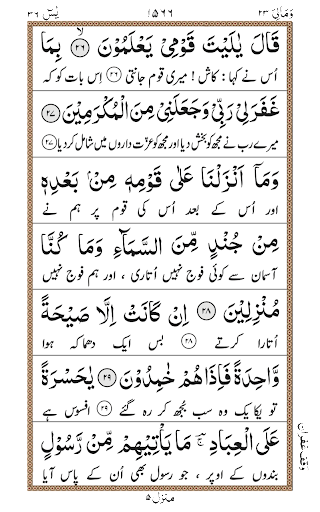 وَمَالِیَ ۲۳ ۱۵۶۶ یٰسٓ ۳۶
قَالَ یٰلَیْتَ قَوْمِیْ یَعْلَمُوْنَ ۙ﴿۲۶﴾ بِمَا
اُس نے کہا : کاش! میری قوم جانتی ﴿۲۶﴾ اِس بات کو کہ
غَفَرَلِیْ رَبِّیْ وَجَعَلَنِیْ مِنَ الْمُکْرَمِیْنَ ﴿۲۷﴾
میرے رب نے مجھ کو بخش دیا اور مجھ کو عزّت داروں میں شامل کر دیا ﴿۲۷﴾
وَمَاۤ اَنْزَلْنَا عَلٰی قَوْمِهٖ مِنْۢ بَعْدِهٖ
اور اُس کے بعد اُس کی قوم پر ہم نے
مِنْ جُنْدٍ مِّنَ السَّمَآءِ وَمَا کُنَّا
آسمان سے کوئی فوج نہیں اُتاری ، اور ہم فوج نہیں
مُنْزِلِیْنَ ﴿۲۸﴾ اِنْ کَانَتْ اِلَّا صَیْحَةً
اُتارا کرتے ﴿۲۸﴾ بس ایک دھماکہ ہوا
وَّاحِدَةً فَاِذَا هُمْ خٰمِدُوْنَ ﴿۲۹﴾ یٰحَسْرَةً
تو یکایک وہ سب بُجھ کر رہ گئے ﴿۲۹﴾ افسوس ہے
عَلَی الْعِبَادِ ۚ مَا یَاْتِیْهِمْ مِّنْ رَّسُوْلٍ
بندوں کے اوپر ، جو رسول بھی اُن کے پاس آیا
وقف غفران
منزل ۵